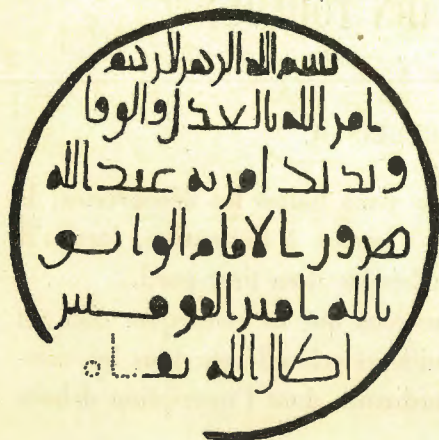 بسم الله الرحمن الرحيم
امر الله بالعدل والوفا
وبذلك امر به عبد الله
هرون الامام الواثق
بالله امير المومنين
اطال الله بقاه